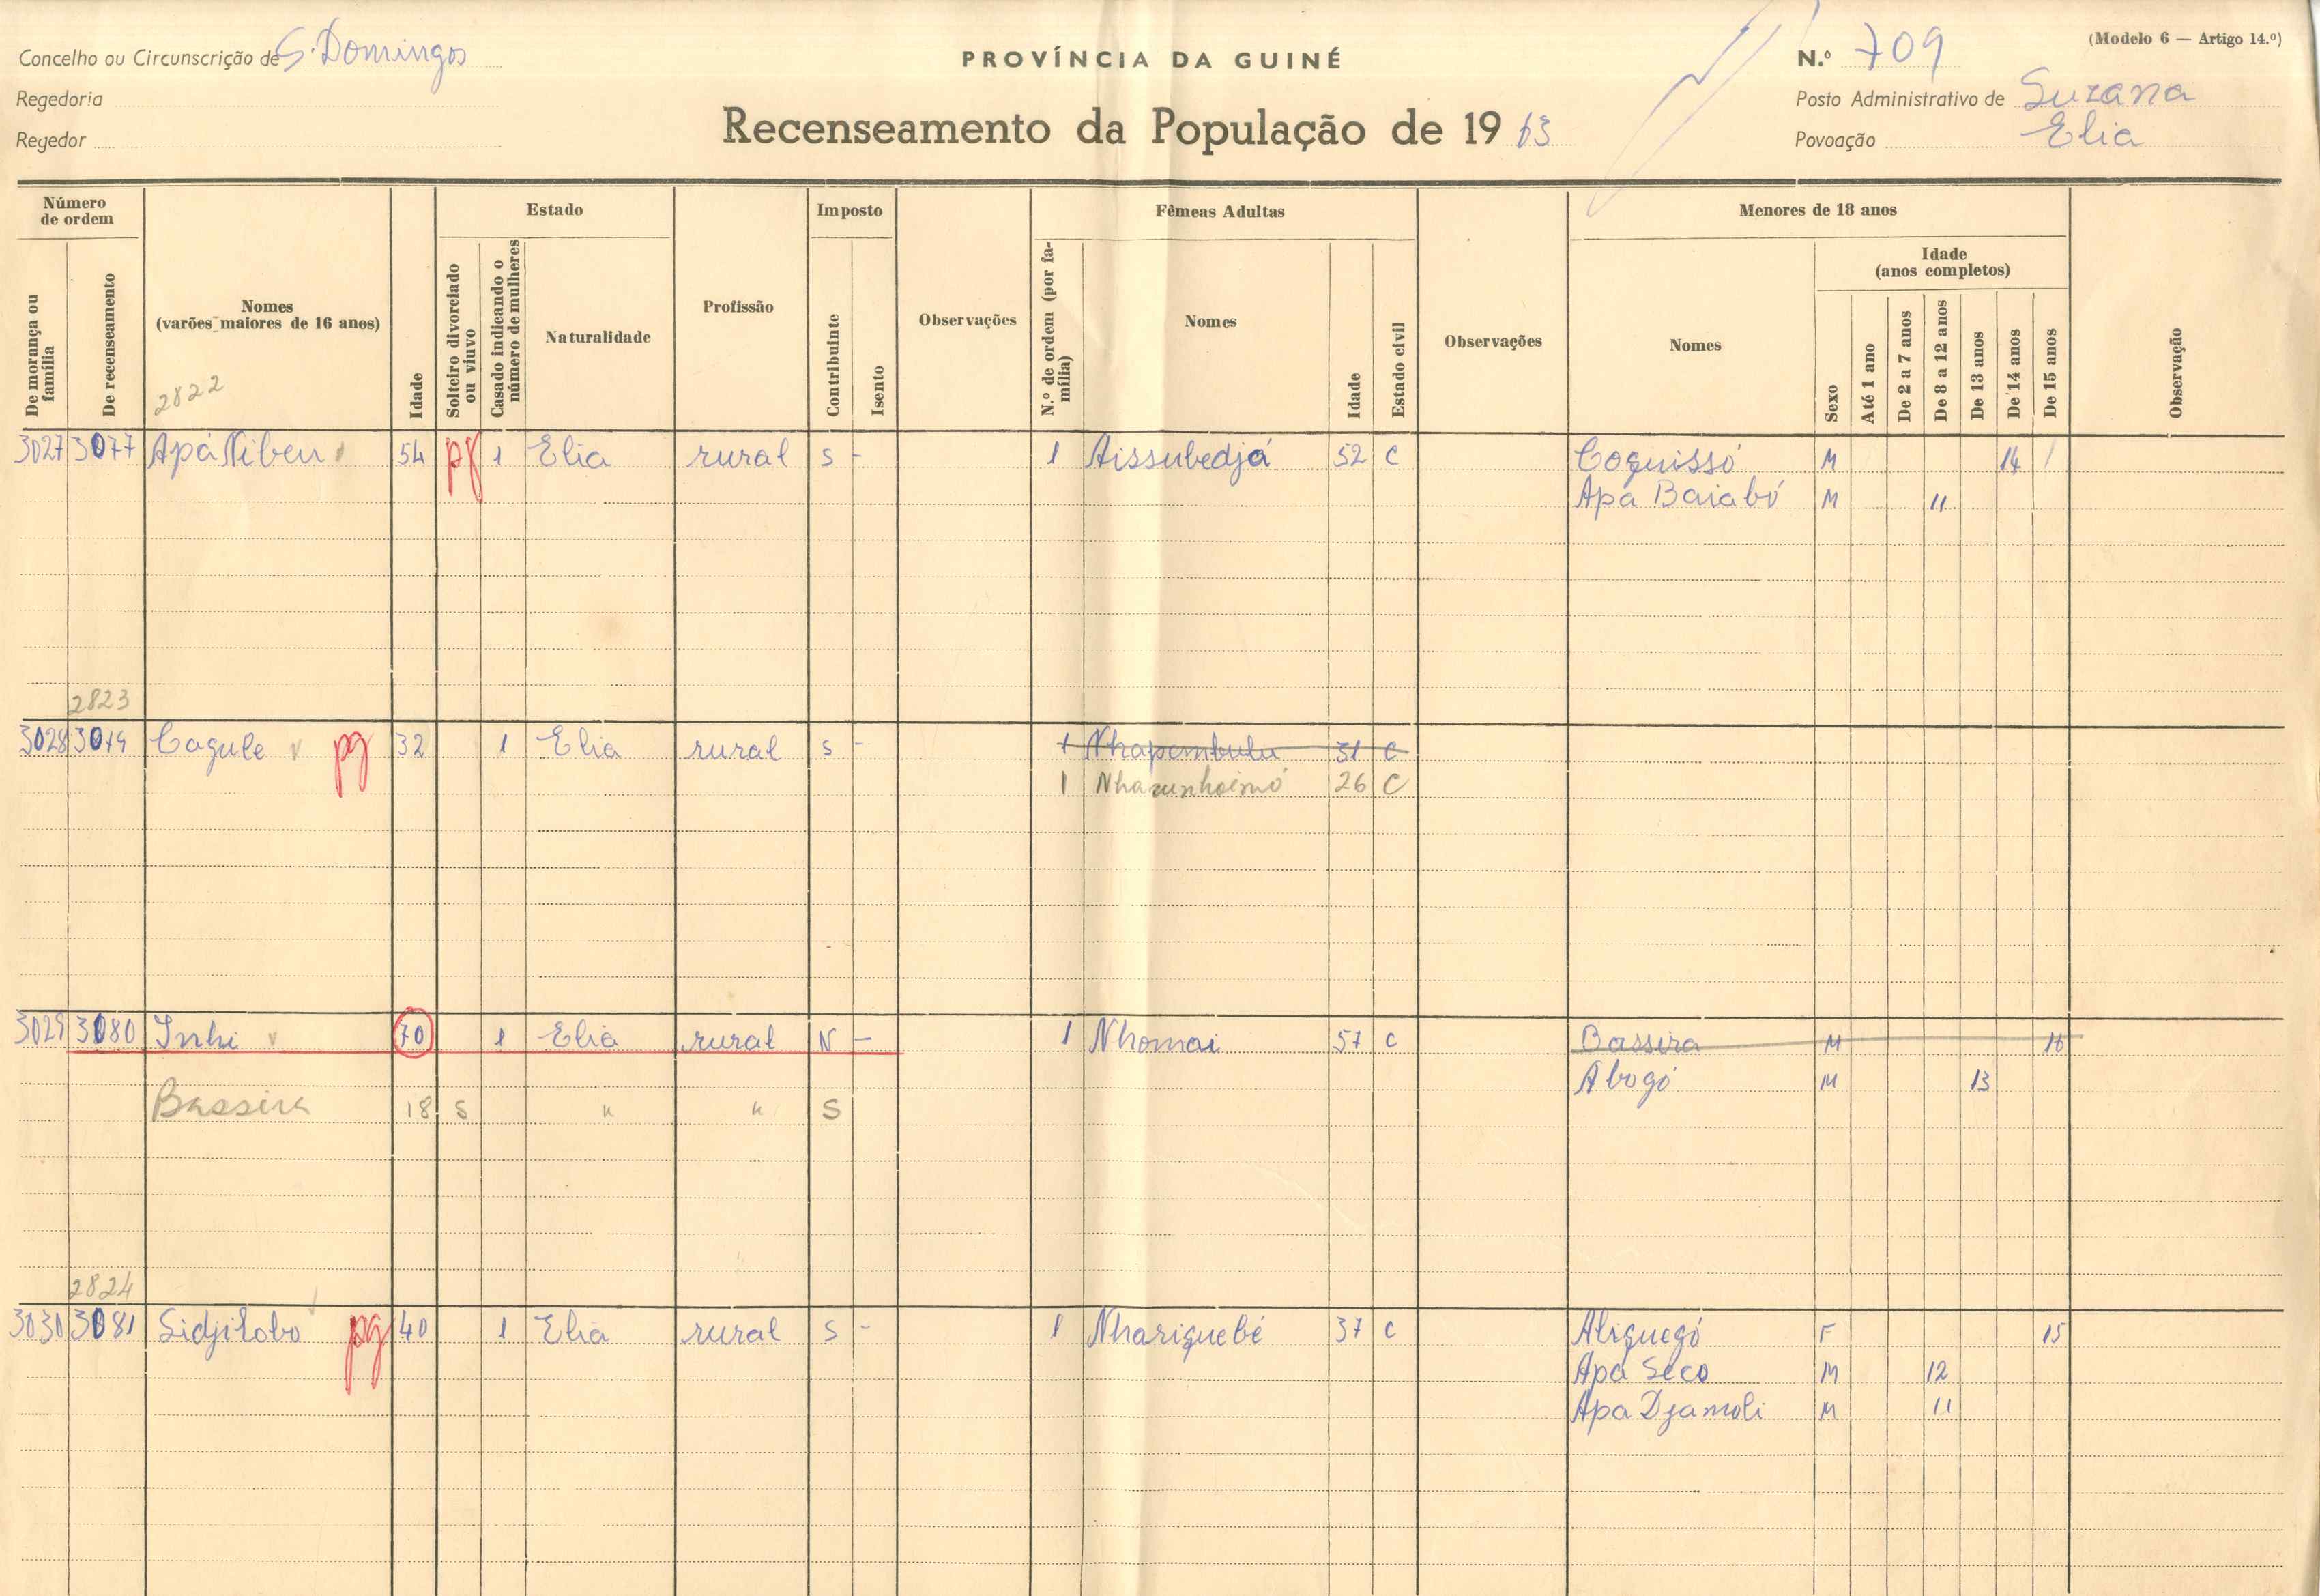 Concelho ou Circunscrição de S. Domingos
Regedoria
Regedor
PROVÍNCIA DA GUINÉ
Recenseamento da População de 1963
(Modelo 6 — Artigo 14.º)
N.º 709
Posto Administrativo de Suzana
Povoação Elia
Número de ordem
De morança ou família
De recenseamento
Nomes (varões maiores de 16 anos)
2822
Idade
Estado
Solteiro divorciado ou viuvo
Casado indicando o número de mulheres
Naturalidade
Profissão
Imposto
Contribuinte
Isento
Observações
Fêmeas Adultas
N.º de ordem (por família)
Nomes
Idade
Estado civil
Observações
Menores de 18 anos
Nomes
Sexo
Idade (anos completos)
Até 1 ano
De 2 a 7 anos
De 8 a 12 anos
De 13 anos
De 14 anos
De 15 anos
Observação
3027 3077 Apá Niben 54 pg 1 Elia rural S - 1 Aissubedjá 52 C Coquissó M 14
Apa Baiabó M 11
2823
3028 3079 Cagule pg 32 1 Elia rural S - 1 Nhapembulu 31 C
1 26 C
3029 3080 Inhi 70 1 Elia rural N - 1 Nhomai 57 C Bassira M 16
Abogó M 13
Bassira 18 S " " S
2824
3030 3081 Sidjilobo pg 40 1 Elia rural S - 1 Nhariquebé 37 C Aliquegó F 15
Apa Seco M 12
Apa Djamoli M 11